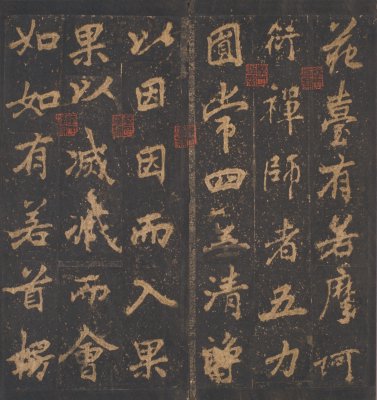 花臺有若摩訶
衍禪師者五力
圓常四無清淨
以因因而入果
果以滅滅而會
如如有若首楞